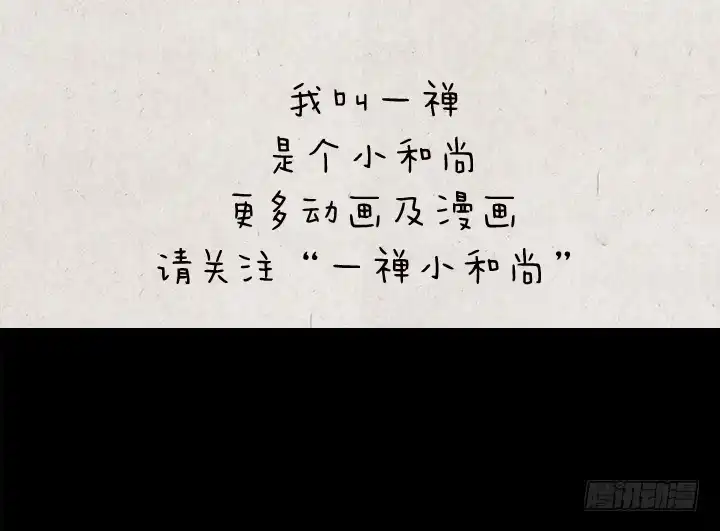 我叫一禅
是个小和尚
更多动画及漫画
请关注“一禅小和尚”
腾讯动漫